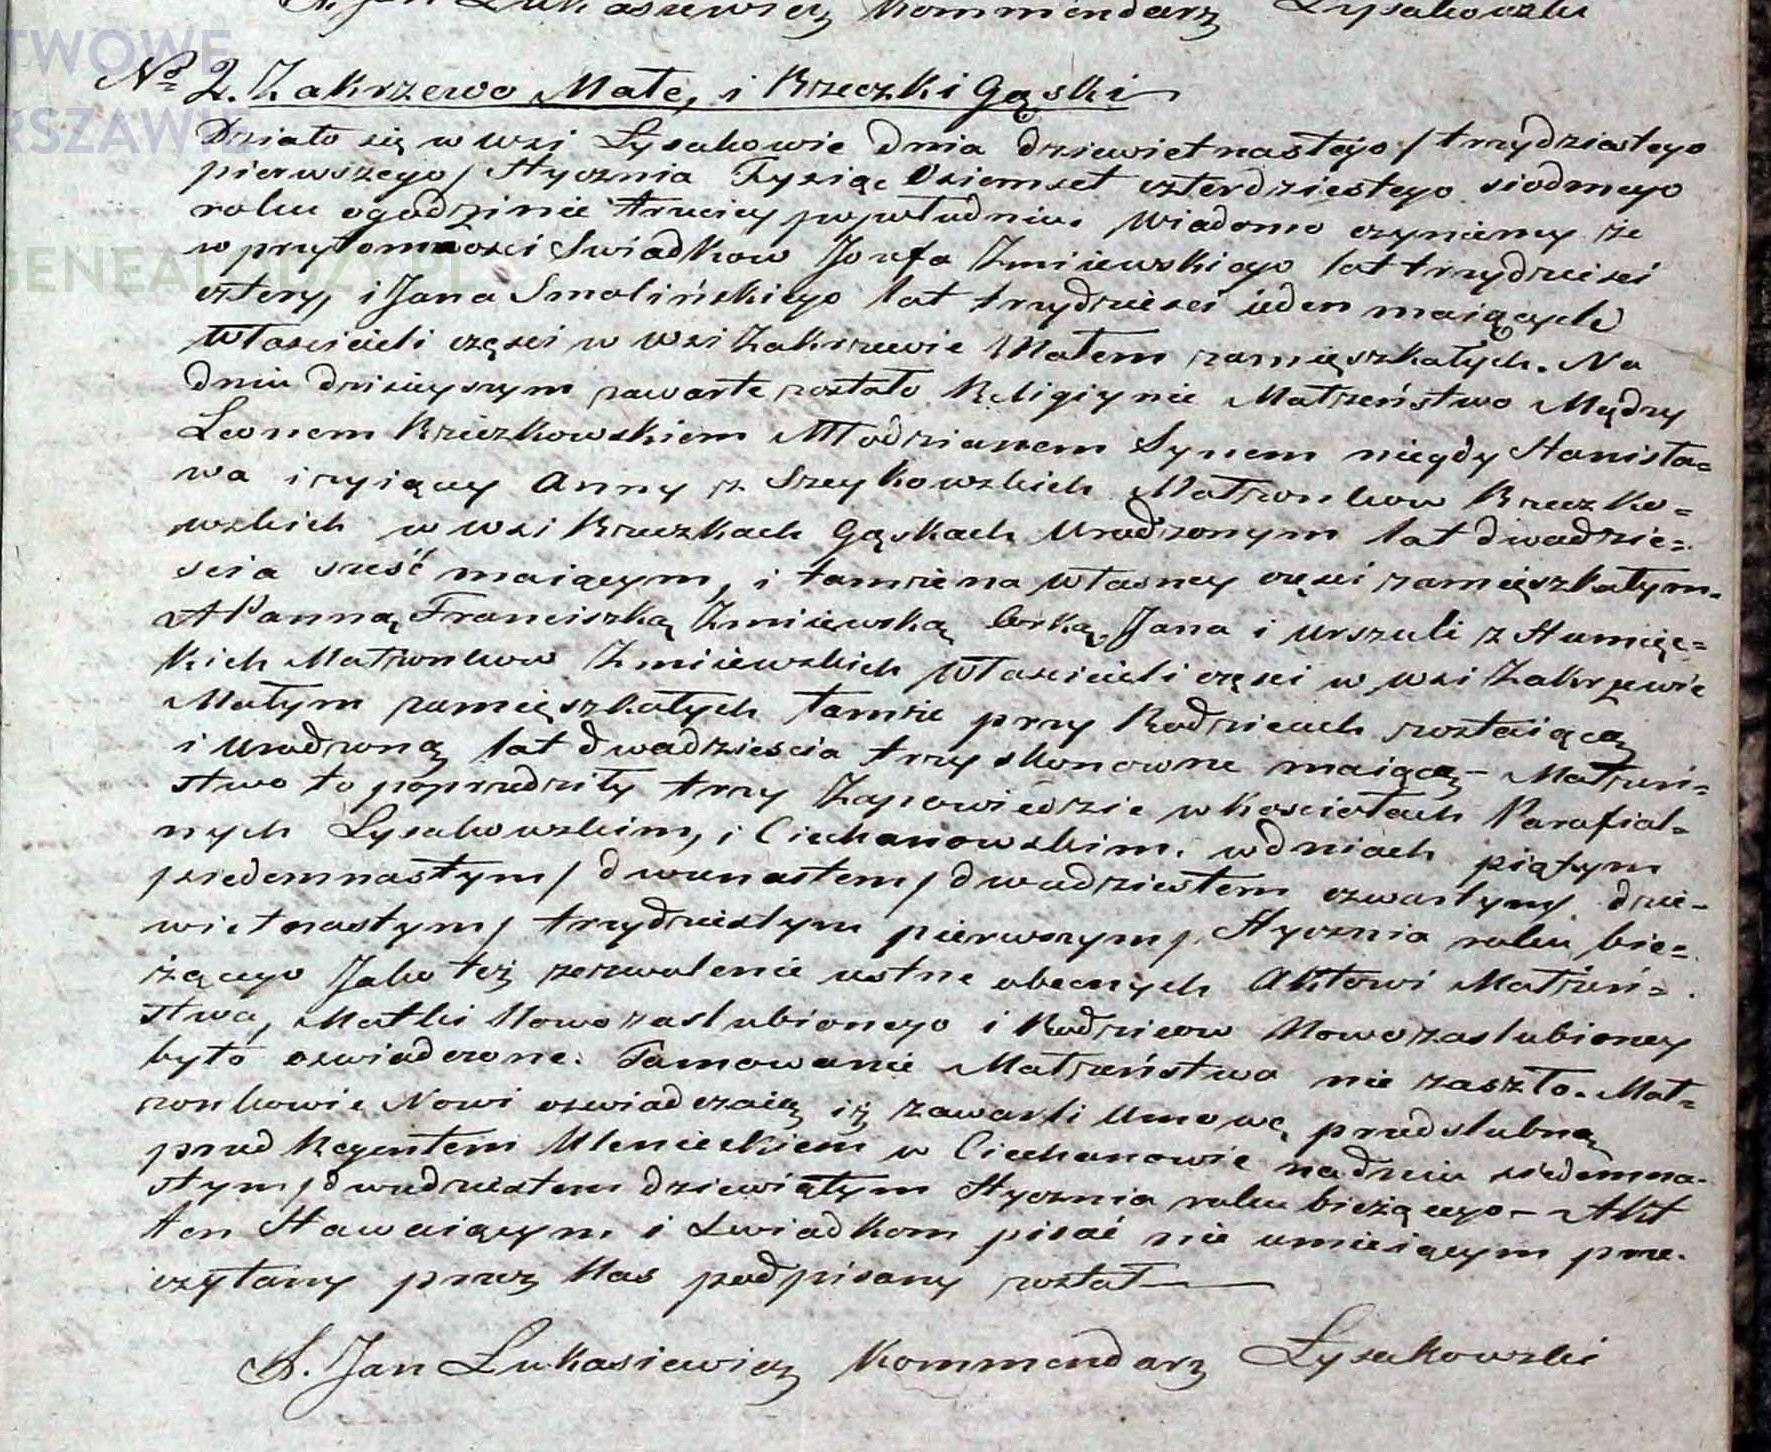 X. Jan Łukasiewicz Kommendarz Łysakowski
TWOWE
RSZAWIE
GENEALODZY.PL
No 2. Zakrzewo Małe, i Rzeczki Gąski
Działo się w wsi Łysakowie dnia dziewietnastego / trzydziestego
pierwszego / Stycznia Tysiąc Osiemset czterdziestego siodmego
roku ogodzinie trzeciey popołudniu. Wiadomo czyniemy że
w przytomnosci Swiadkow Jozefa Zmiiewskiego lat trzydziesci
cztery, i Jana Smolińskiego lat trzydziesci ieden maiących
Włascicieli częsci w wsi Zakrzewie Małem zamięszkałych. Na
dniu dzisieyszym zawarte zostało Religiynie Małżeństwo Między
Leonem Rzeczkowskiem Młodzianem Synem niegdy Stanisła=
wa i zyiący Anny z Szeykowskich Małżonkow Rzeczko=
wskich w wsi Rzeczkach Gąskach Urodzonym lat dwadzie=
scia szesć maiącym, i tamże na własney częsci zamięszkałym.
A Panną Franciszką Zmiiewską Corką Jana i Urszuli z Humięc=
kich Małżonkow Zmiiewskich Włascicieli częsci w wsi Zakrzewie
Małym zamięszkałych tamże przy Rodzicach zostaiącą
i urodzoną lat dwadziescia trzy skonczone maiącą - Małżeń=
stwo to poprzedziły trzy Zapowiedzie w Kosciołach Parafial=
nych Łysakowskim, i Ciechanowskim. w dniach piątym
/ siedemnastym / dwunastem / dwadziestem czwartym / dzie=
wietnastym / trzydziestym pierwszym / Stycznia roku bie=
żącego Jako też zezwolenie ustne obecnych Aktowi Małżeń=
stwa, Matki Nowozaslubionego i Rodzicow Nowozaslubioney
było oswiadczone. Tamowanie Małżeństwa nie zaszło. Mał=
żonkowie Nowi oswiadczaią iż zawarli Umowę przedslubną
przed Regentem Ulenieckiem w Ciechanowie na dniu siedemna=
stym / dwudziestem dziewiątym Stycznia roku bieżącego - Akt
ten Stawaiącym i Swiadkom pisać nie umieiącym prze=
czytany przez Nas podpisany został
X. Jan Łukasiewicz Kommendarz Łysakowski